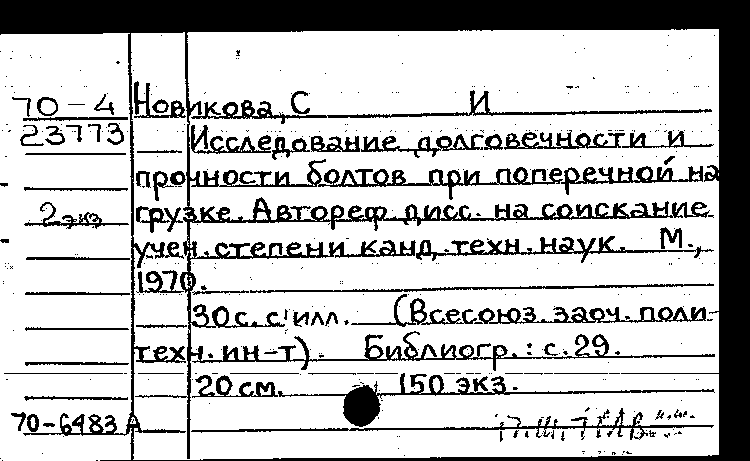 70-4 Новикова, С И
23773 Исследование долговечности и
прочности болтов при поперечной на
2 экз грузке. Автореф дисс. на соискание
учен. степени канд. техн. наук. М.,
1970.
30 с. с илл. (Всесоюз. заоч. поли-
техн. ин-т). Библиогр.: с. 29.
20 см. 150 экз.
70-6483 А